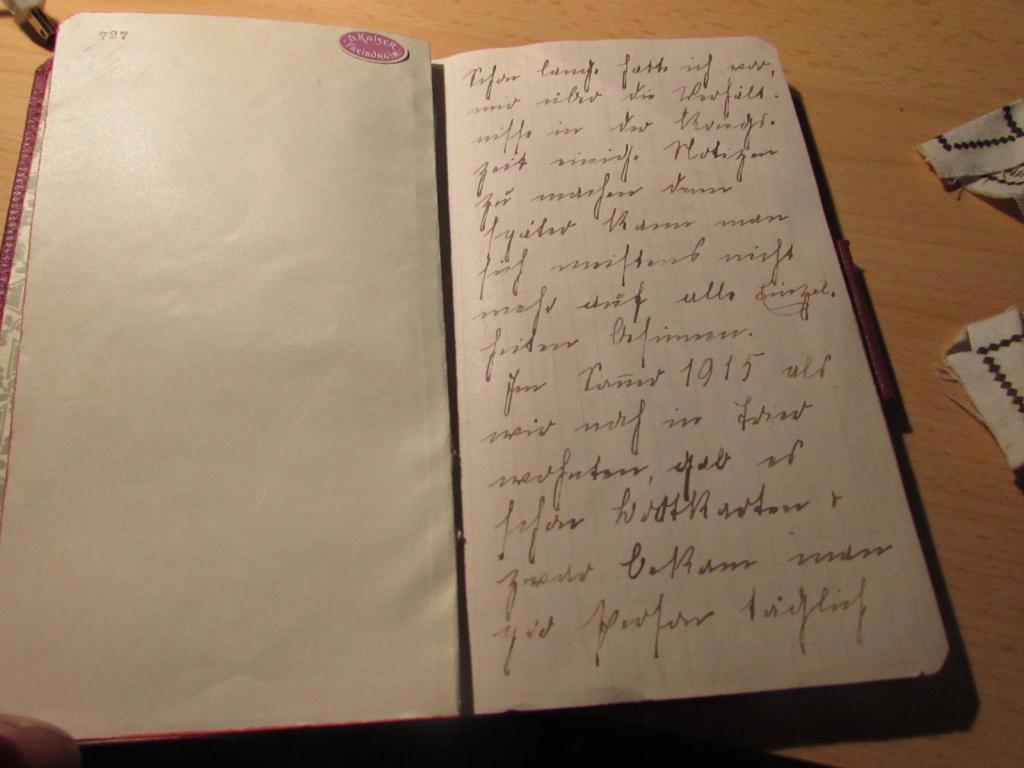 727
D. KAISER
FREIBURG i/B.
Schon lange hatte ich vor,
mir über die Verhält-
nisse in der Kriegs-
zeit einige Notizen
zu machen denn
später kann man
sich meistens nicht
mehr auf alle Einzel-
heiten besinnen.
Im 1915 als
wir noch in Trier
wohnten, gab es
schon Brotkarten &
zwar bekam man
pro Person täglich